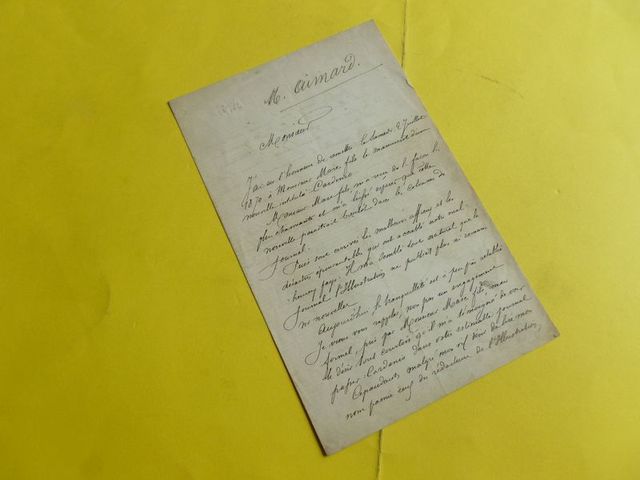 M. Aimard.
Monsieur
J'ai eu l'honneur de remettre le Samedi 2 Juillet
1870 à Monsieur Marc fils le manuscrit d'une
nouvelle intitulée Cardenio.
Monsieur Marc fils, m'a reçu de la façon la
plus charmante et m'a laissé espérer que cette
nouvelle paraîtrait bientôt dans les colonnes du
Journal.
Puis sont arrivés les malheurs affreux et les
désastres épouvantables qui ont accablé notre mal-
heureux pays. Il m'a semblé tout naturel que le
Journal l'Illustration ne publiât plus ni romans
ni nouvelles.
Aujourd'hui la tranquillité est à peu près rétablie
Je viens vous rappeler, non pas un engagement
formel, pris par Monsieur Marc fils, mais
le désir tout courtois qu'il m'a témoigné de voir
passer Cardenio dans votre estimable journal
Cependant, malgré mon vif désir de lire mon
nom parmi ceux des rédacteurs de l'Illustration,